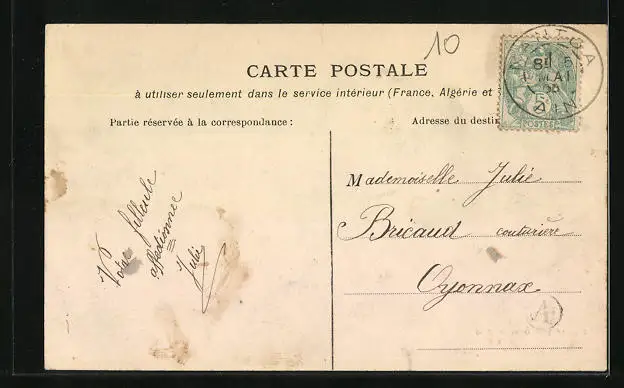 10
CARTE POSTALE
à utiliser seulement dans le service intérieur (France, Algérie et
Partie réservée à la correspondance :
Adresse du destin
POSTES
MAI
AIN
Mademoiselle Julie
Bricaud couturière
Oyonnax
Votre filleule
affectionnée
Julie